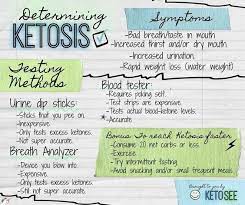 Determining
KETOSIS
Symptoms
-Bad breath/taste in mouth
-Increased thirst and/or dry mouth
-Increased urination.
-Rapid weight loss (water weight)
Testing
Methods
Urine dip sticks:
-Sticks that you pee on.
-Inexpensive.
-Only tests excess ketones.
-Not so accurate.
Breath Analyzer
-Device you blow into.
-Expensive.
-Only tests excess ketones.
-Not so accurate.
Blood tester:
-Requires picking self.
-Test strips are expensive.
-Tests actual blood-ketone levels.
*Accurate.
Bonus: To reach Ketosis faster
-Consume 20 net carbs or less.
-Exercise
-Try intermittent fasting
-Avoid snacking and/or small frequent meals
Brought to you by
KETOSEE